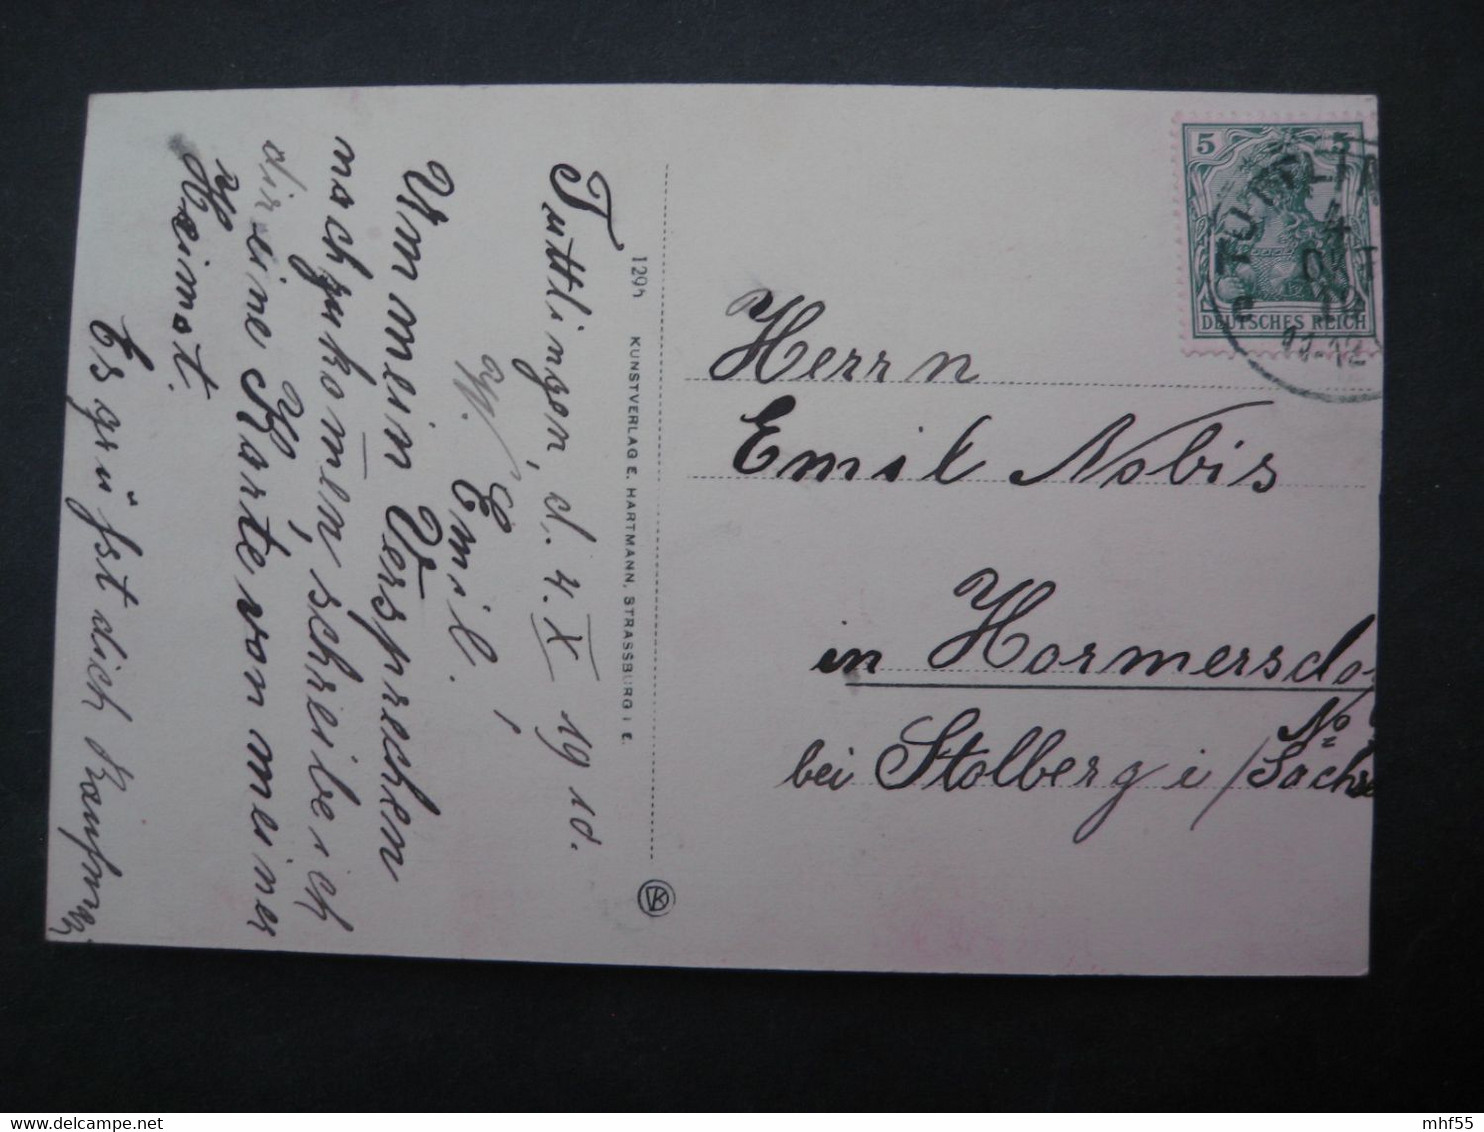 Tuttlingen, d. 4. X 1910.
W. Emil!
Um mein Versprechen
nachzukom̄en, schreibe ich
dir eine Karte von meiner
Heimat.
Es grüsst dich
1295 KUNSTVERLAG E. HARTMANN, STRASSBURG I. E.
VK
5
DEUTSCHES REICH
TUTTLIN
4
OKT
11-12
Herrn
Emil Nobis
in Hormersdo
No
bei Stolberg i/Sachse
mhf55